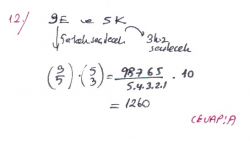 12./ 9E ve 5K
5 erkek seçilecek 3 kız seçilecek
(9 5) · (5 3) = 9 8 7 6 5 / 5.4.3.2.1 · 10
= 1260
CEVAP: A